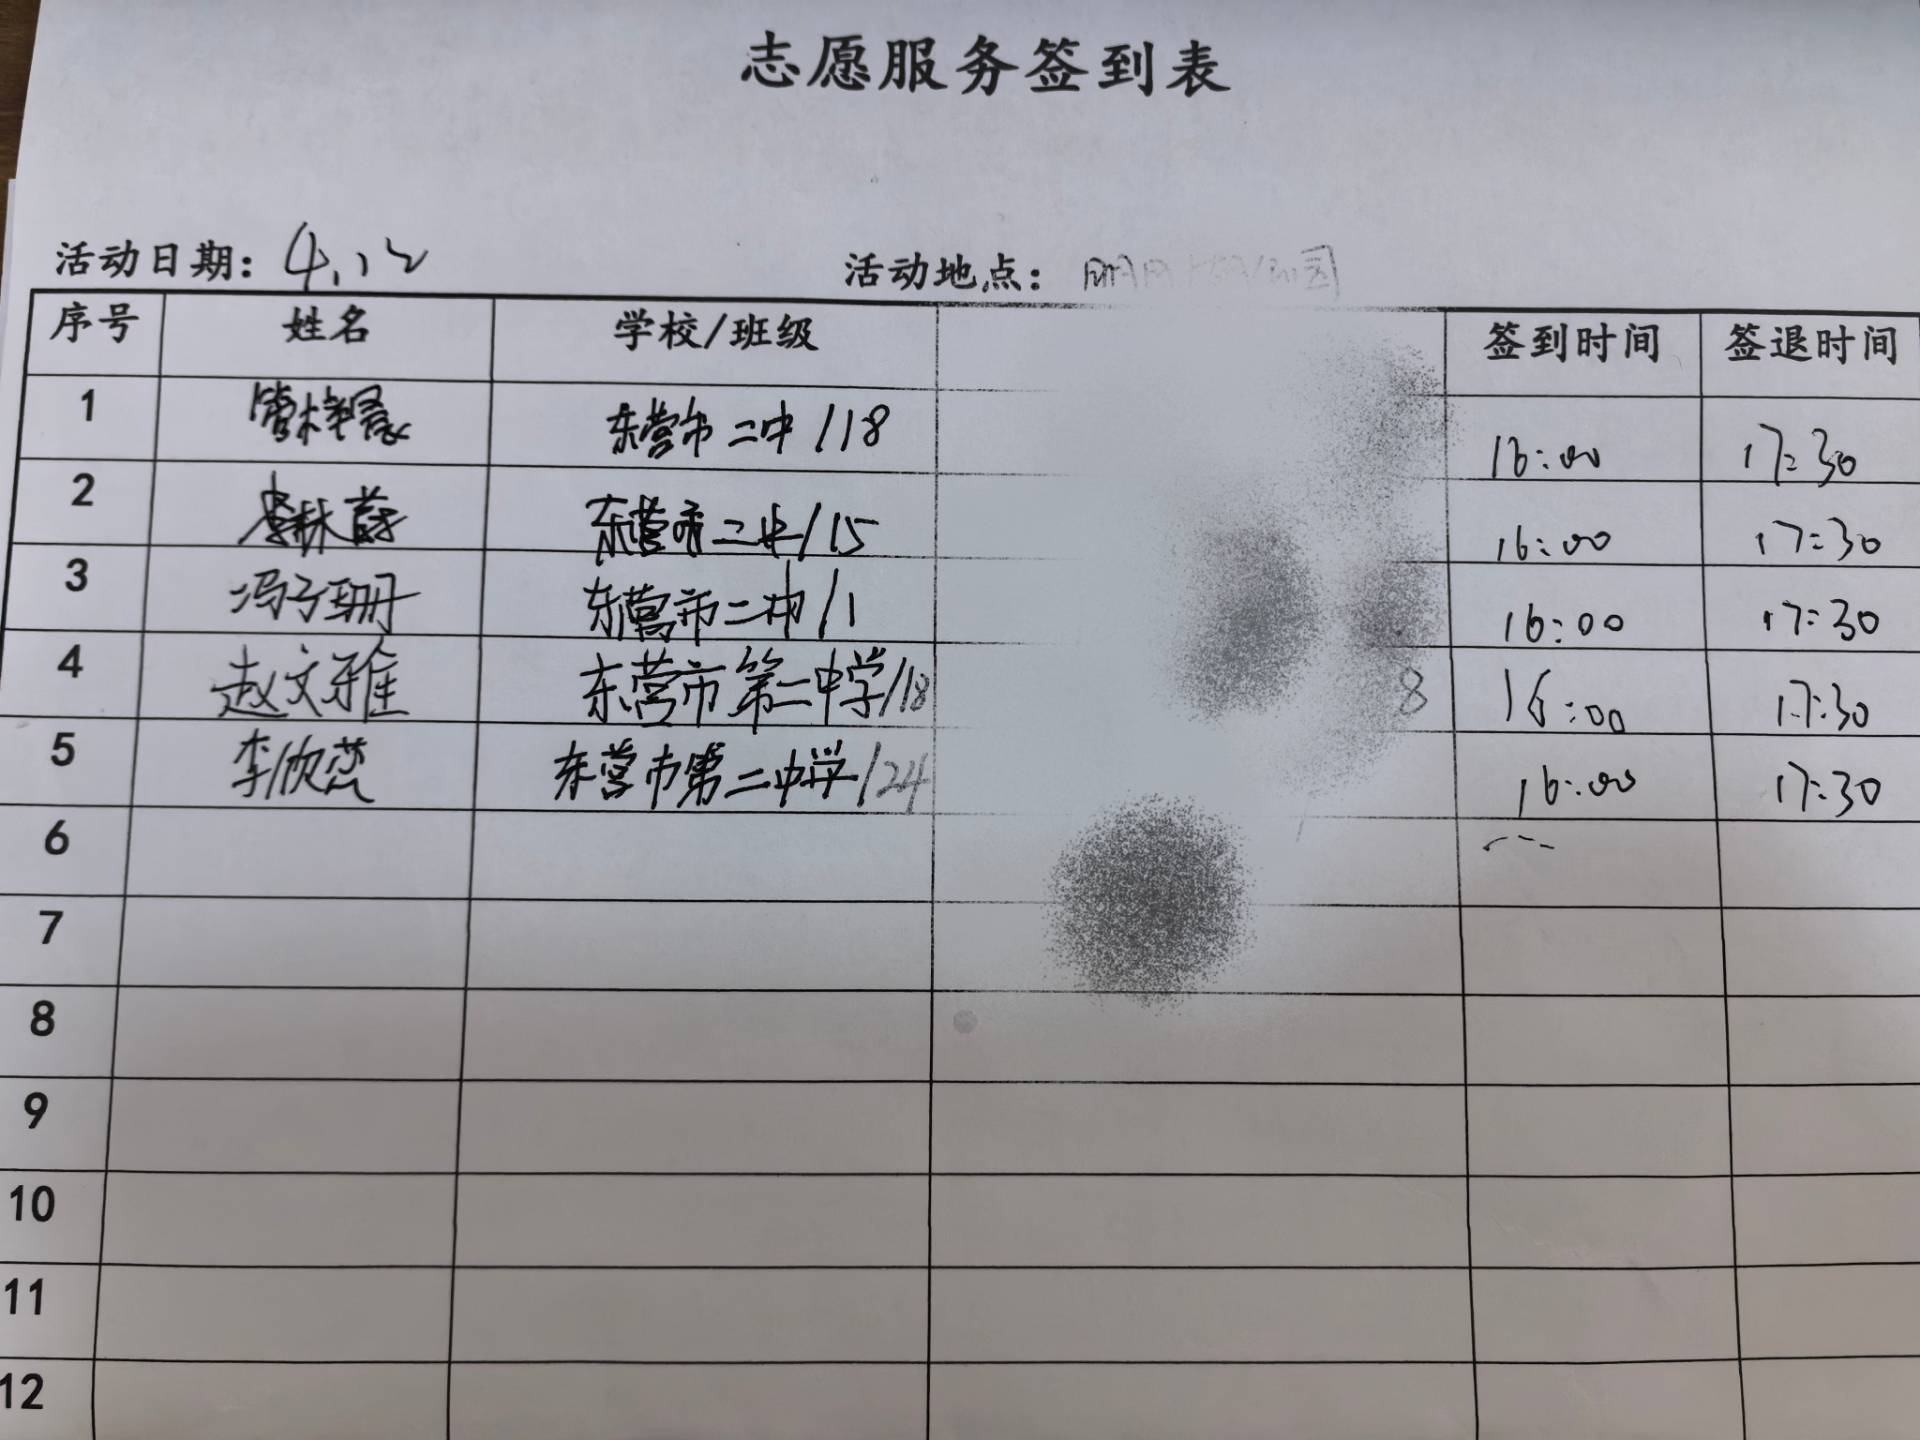 志愿服务签到表
活动日期：4.12
活动地点：
序号 姓名 学校/班级 签到时间 签退时间
1 管梓晨 东营市二中/18 16:00 17:30
2 李林蔚 东营市二中/15 16:00 17:30
3 冯子珊 东营市二中/1 16:00 17:30
4 赵文雅 东营市第二中学/18 8 16:00 17:30
5 李欣蕊 东营市第二中学/24 16:00 17:30
6
7
8
9
10
11
12